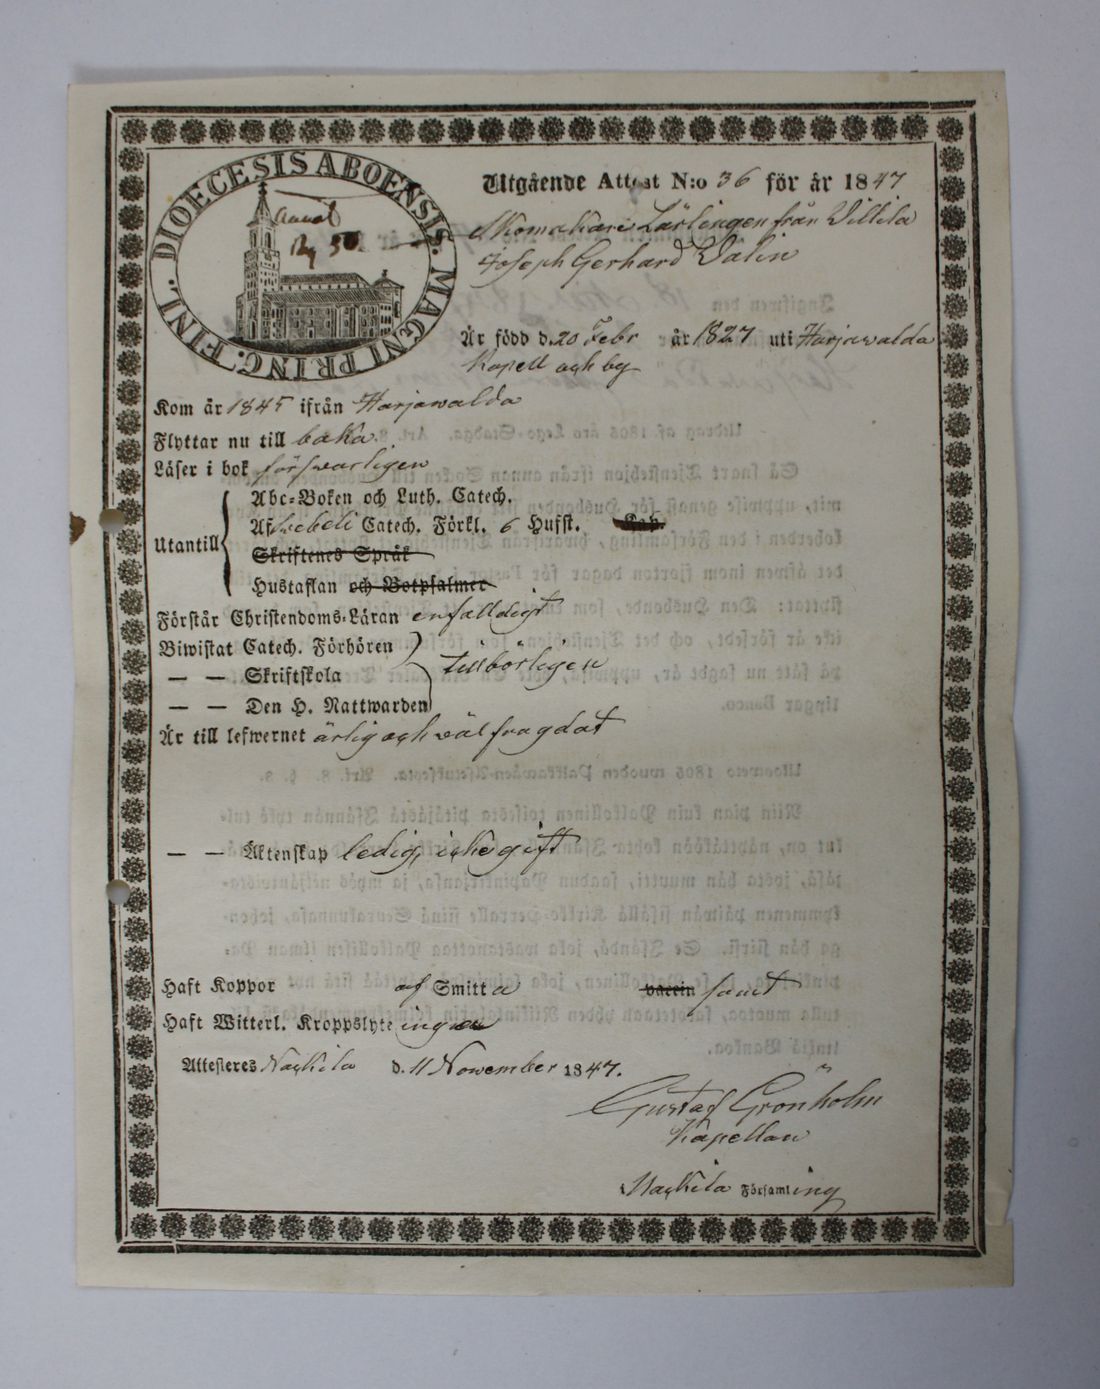 DIOECESIS ABOENSIS. MAGNI PRINC. FINL.
Utgående Attest N:o 36 för år 1847
Skomakare Lärlingen från Villila
Joseph Gerhard Dalin
Är född d. 20 Febr år 1827 uti Harjawalda
Kapell och by
Kom år 1845 ifrån Harjawalda
Flyttar nu till baka.
Läser i bok förswarligen
Utantill
Abc-Boken och Luth. Catech.
Af Lebeli Catech. Förkl. 6 Hufst. Kap.
Skriftenes Språk
Hustaflan och Botpsalmer
Förstår Christendoms-Läran enfalldigt
Biwistat Catech. Förhören
— — Skriftskola
tillbörligen
— — Den H. Nattwarden
Är till lefwernet ärlig och wäl fragdat
— — Äktenskap ledig, icke gift
Haft Koppor af Smitta vaccin samt
Haft Witterl. Kroppslyte ingen
Attesteres Nackila d. 11 Nowember 1847.
Gustaf Grönholm
Kapellan
Nackila Församling